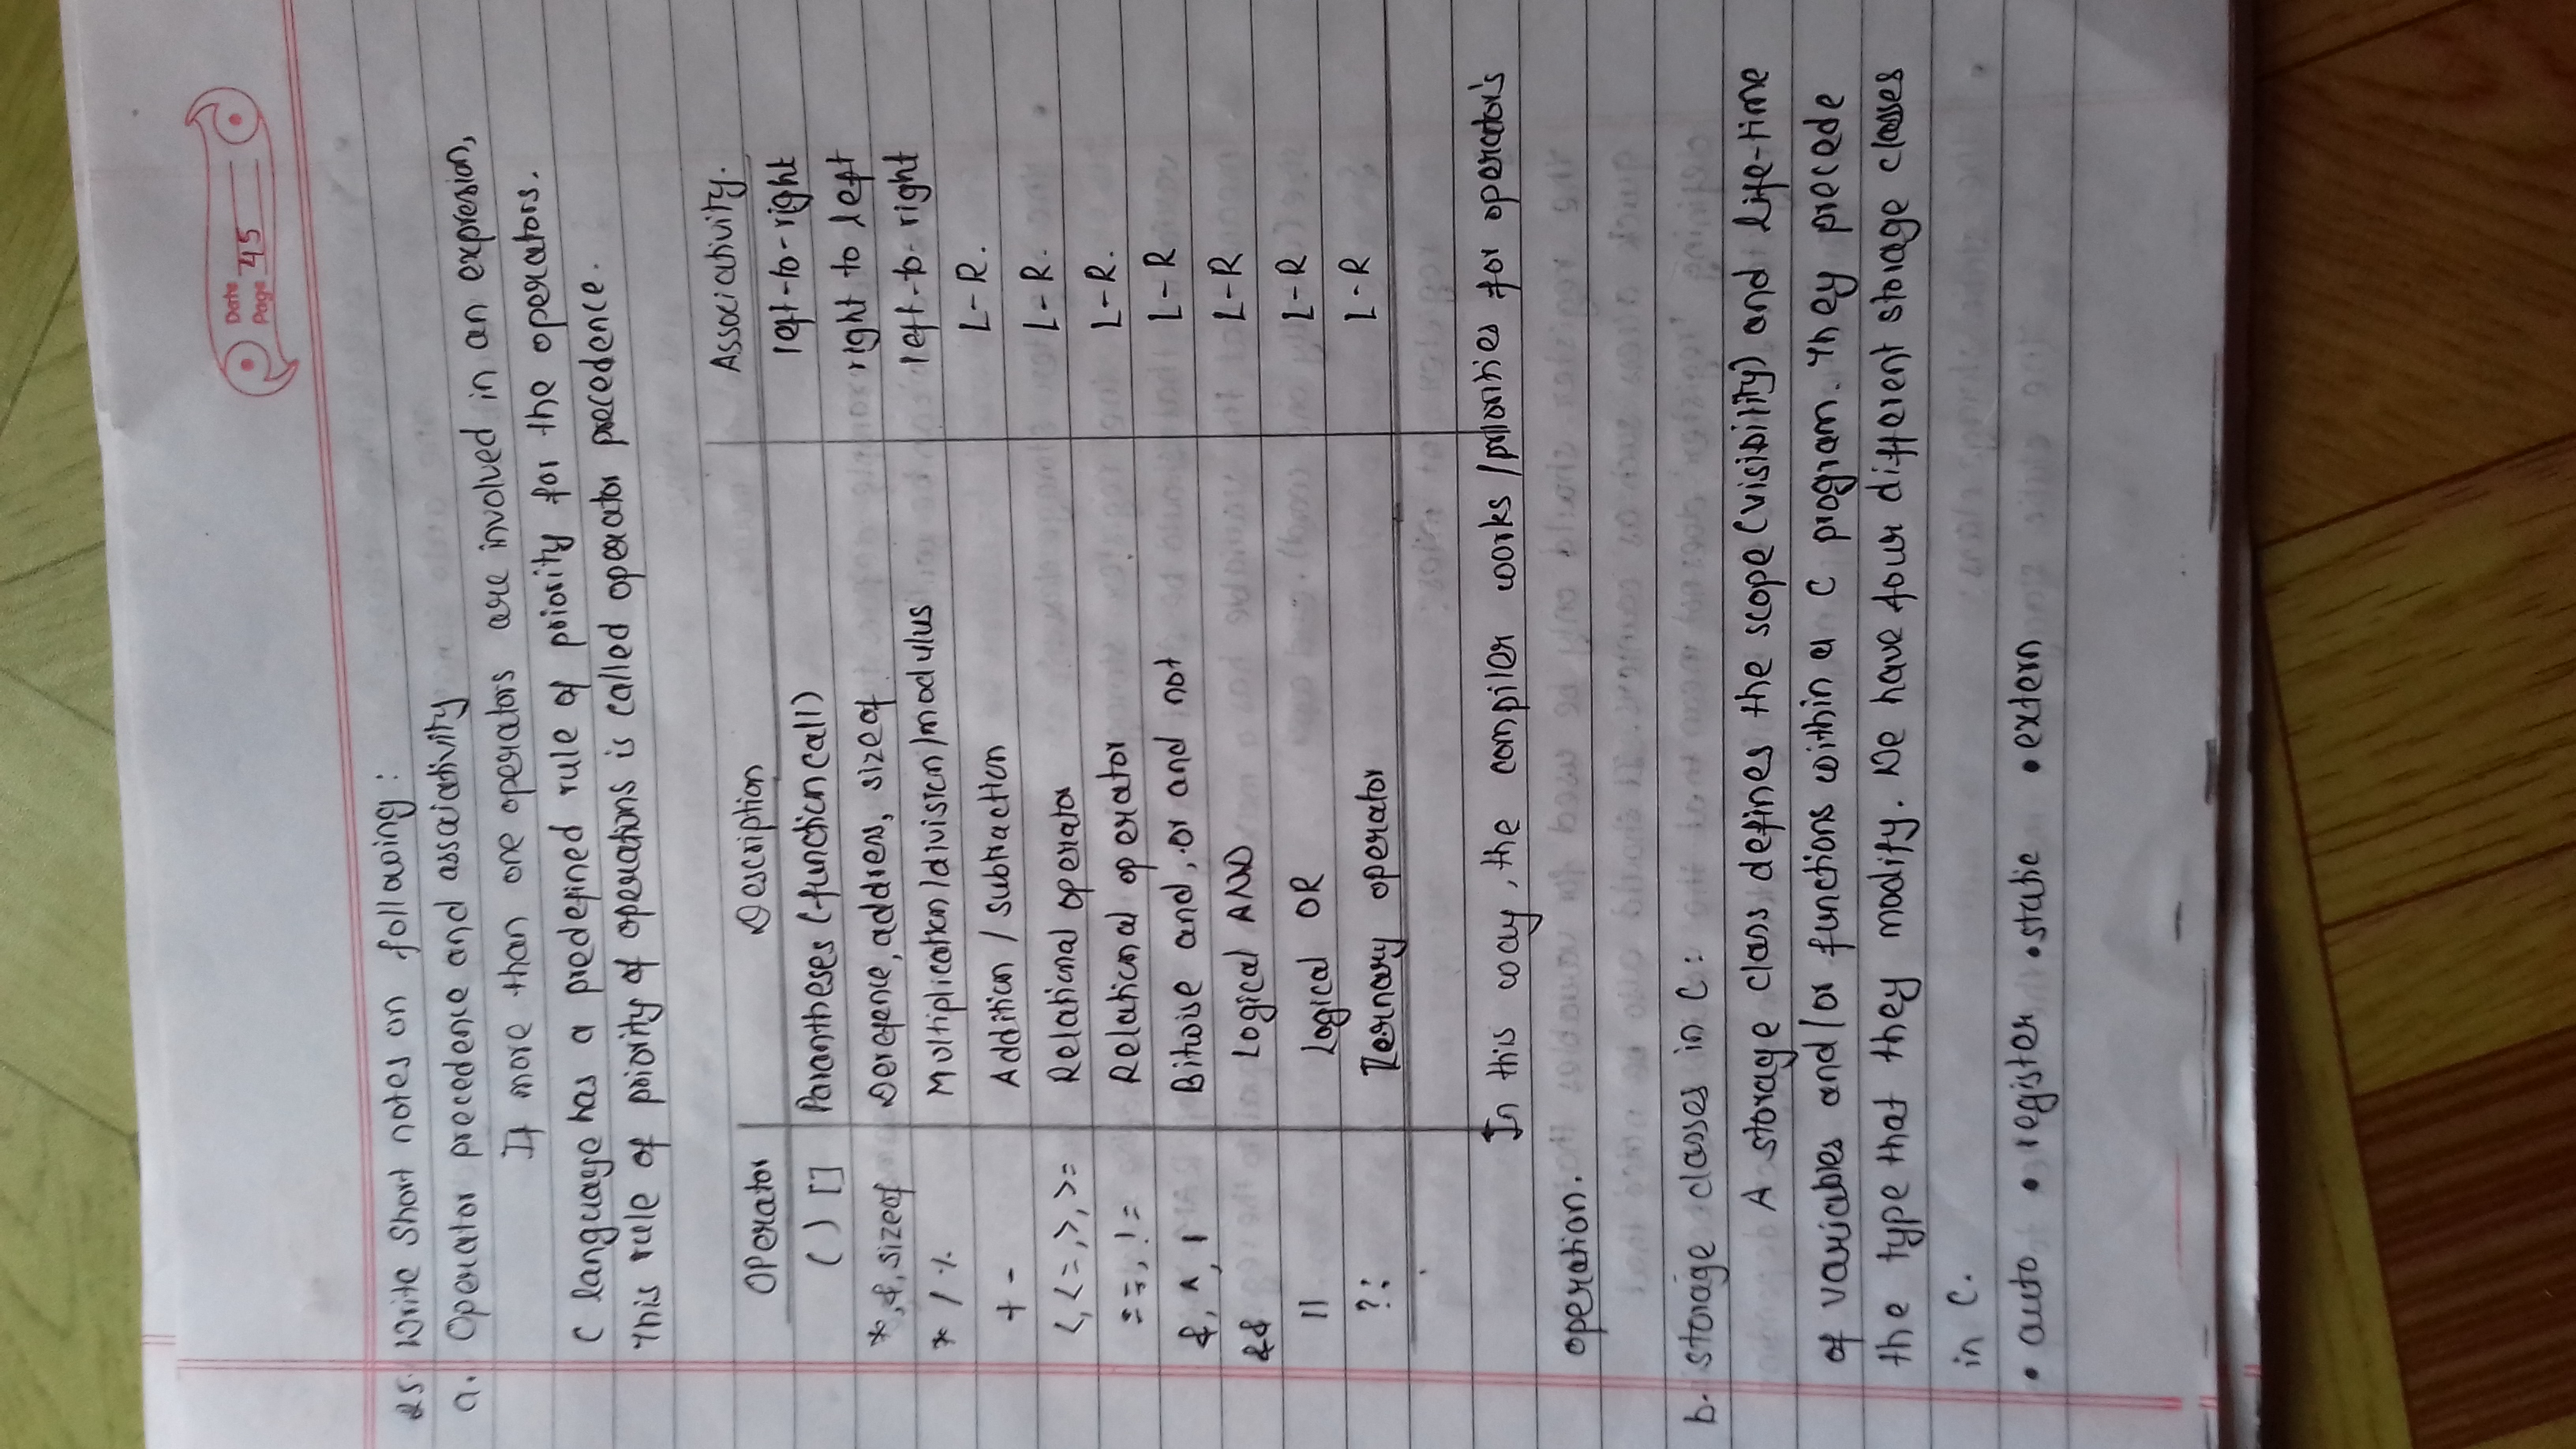 Date
Page 45
25. Write short notes on following:
a. Operator precedence and associativity
If more than one operators are involved in an expression,
C language has a predefined rule of priority for the operators.
This rule of priority of operations is called operator precedence.
Operator Description Associativity.
( ) [] Parantheses (function call) left-to-right
*, &, sizeof Derefence, address, sizeof right to left
* / % Multiplication/division/modulus left-to-right
+ - Addition / subtraction L-R.
<, <=, >, >= Relational operator L-R.
==, != Relational operator L-R.
&, ^, | Bitwise and, or and not L-R
&& Logical AND L-R
|| Logical OR L-R
?: Ternary operator L-R
In this way, the compiler works / priorities for operator's
operation.
b. storage classes in C:
A storage class defines the scope (visibility) and life-time
of variables and/or functions within a C program. They precede
the type that they modify. We have four different storage classes
in C.
• auto • register • static • extern